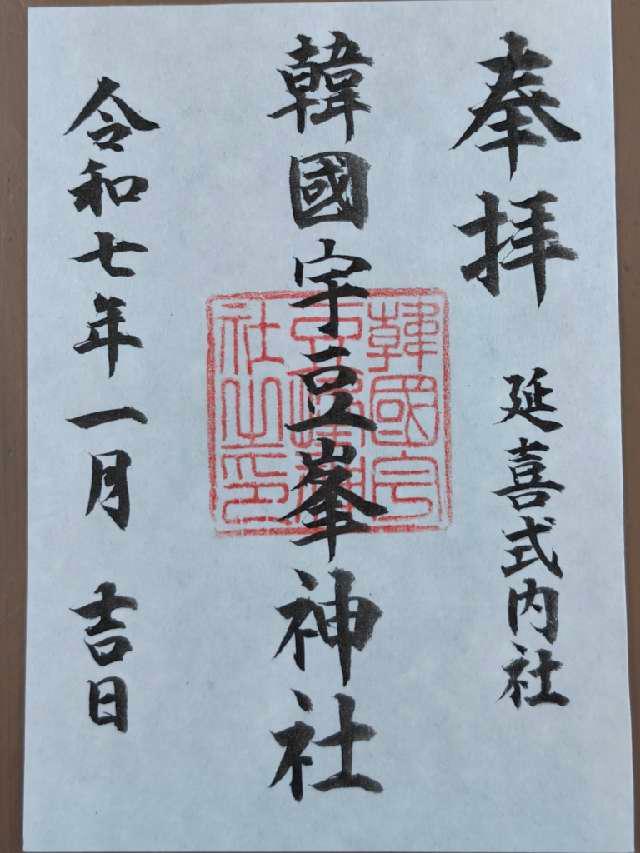 奉拝
延喜式内社
韓國宇豆峯神社
韓國宇
豆峯神
社之印
令和七年一月 吉日